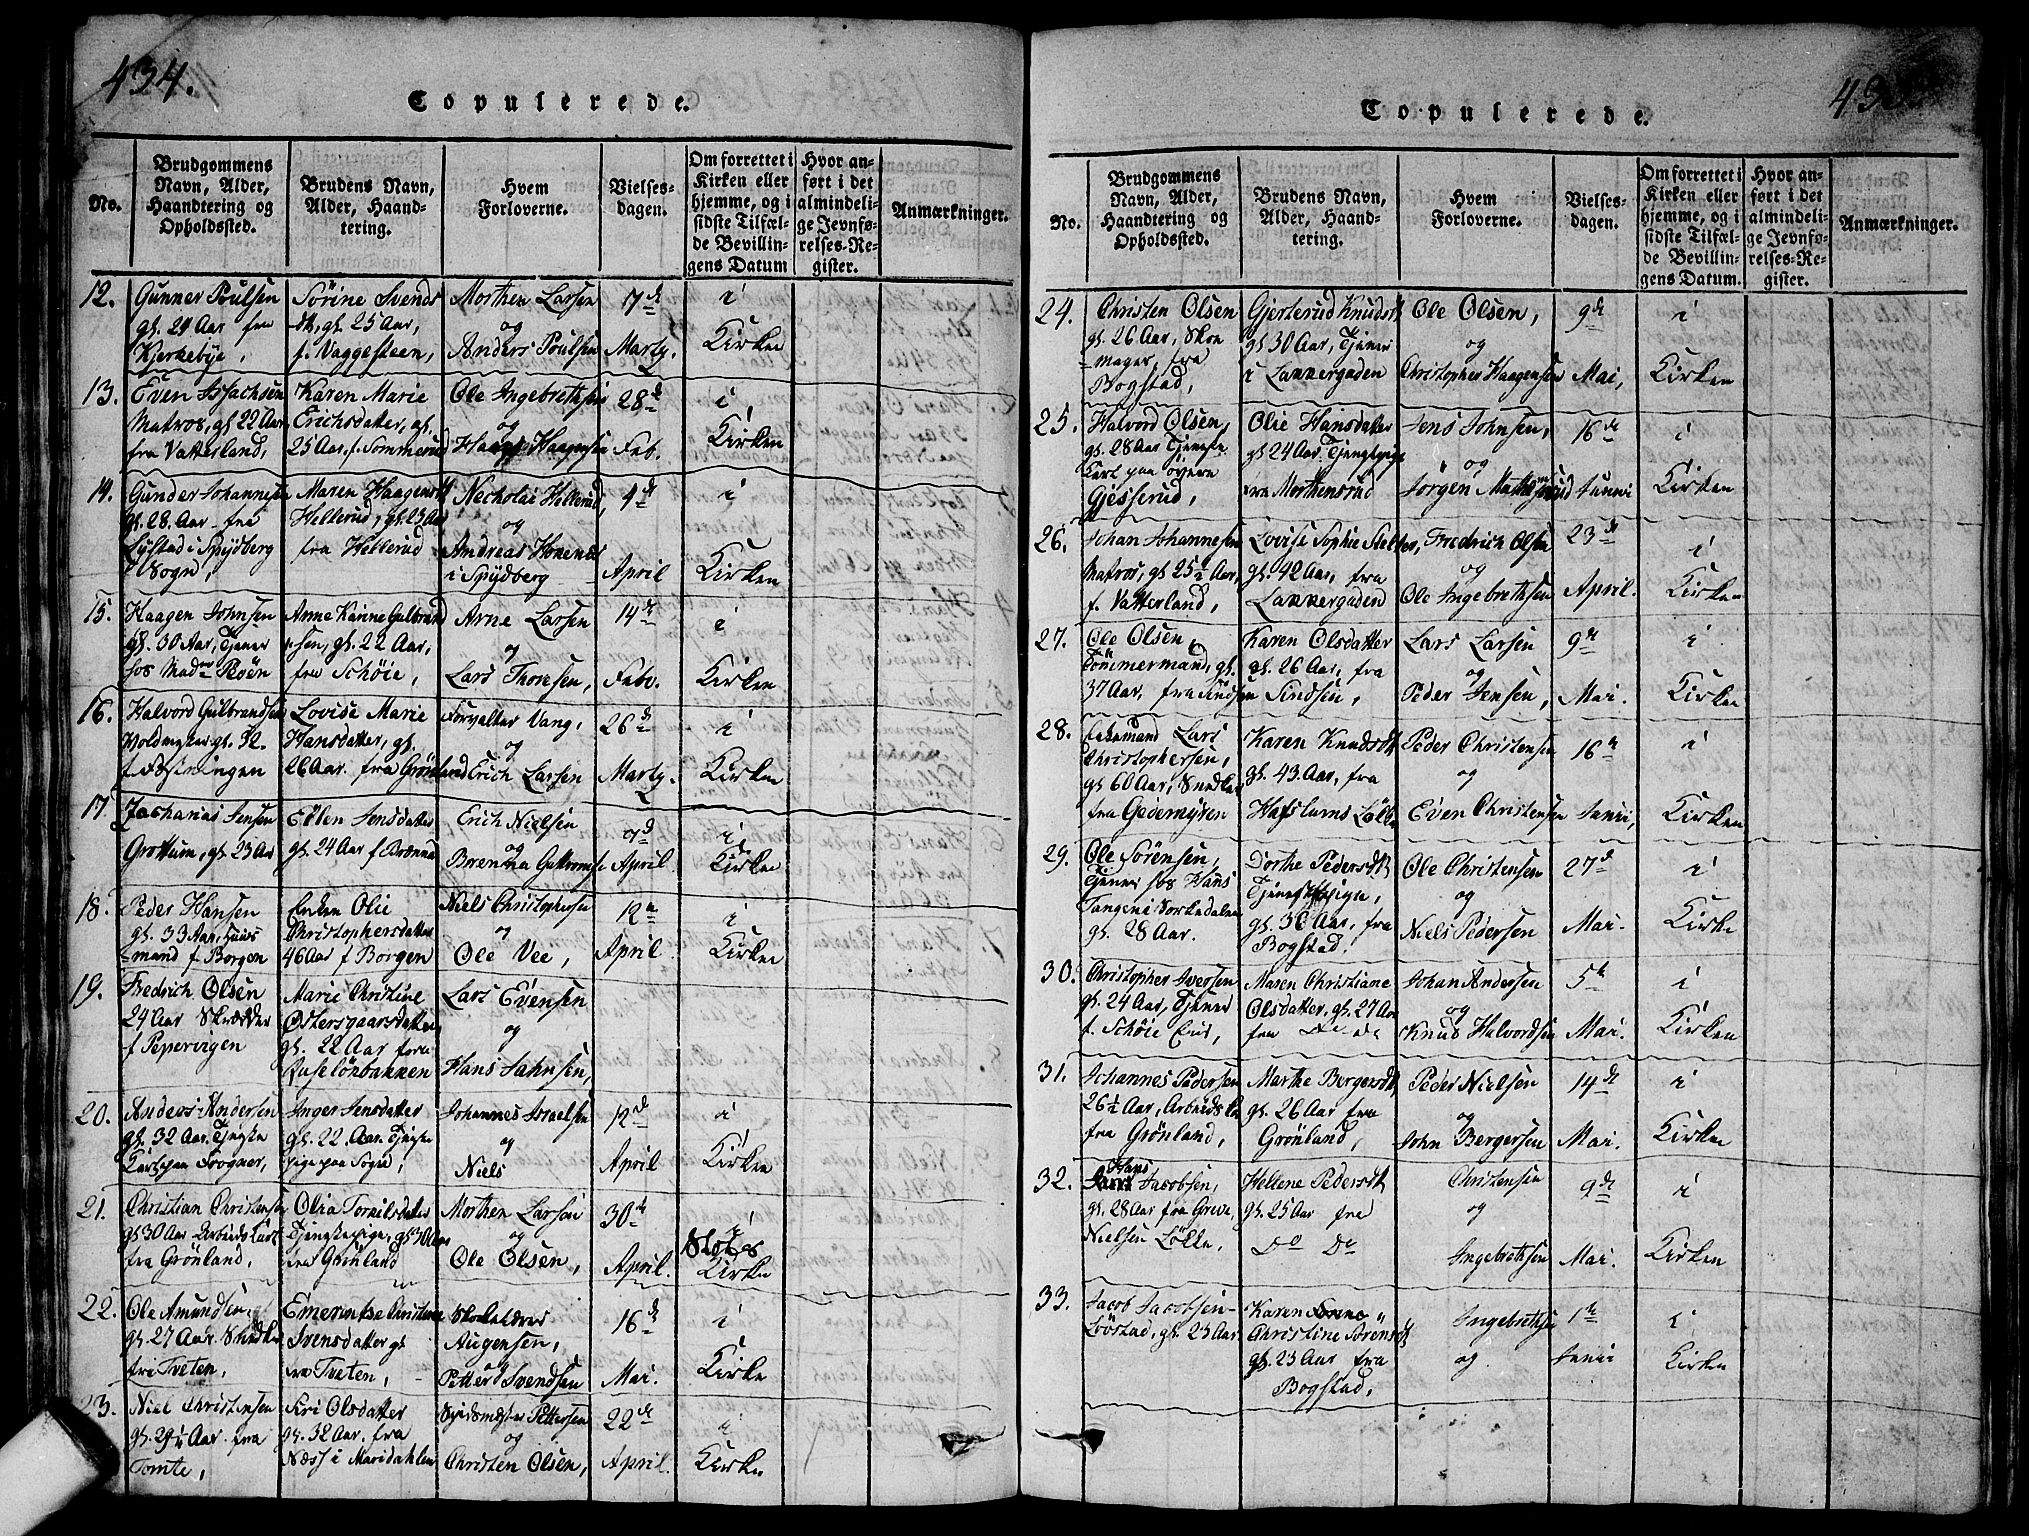 434.
Copulerede.
No.
Brudgommens
Navn, Alder,
Haandtering og
Opholdssted.
Brudens Navn,
Alder, Haand-
tering.
Hvem
Forloverne.
Vielses-
dagen.
Om forrettet i
Kirken eller
hjemme, og i
sidste Tilfæl-
de Bevillin-
gens Datum
Hvor an-
ført i det
almindeli-
ge Jevnfø-
relses-Re-
gister.
Anmærkninger.
12.
Gunner Poulsen
gl. 21 Aar fra
Kjerkebye,
Sörine Svends
dt, gl. 25 Aar,
f. Vaggesteen,
Morthen Larsen
og
Anders Poulsen
7de
Marty.
i
Kirken
13.
Even Issachsen
Matros, gl 22 Aar
fra Vatterland,
Karen Marie
Erichsdatter, gl.
25 Aar. f. Sommerud
Ole Ingebrethsen
og
Haagen Haagensen
28de
Feb.
i
Kirken
14.
Gunder Johannesen
gl. 28. Aar fra
Lystad i Spydberg
Sogn,
Maren Haagensdt
Hellerud, gl. 23 Aar
fra Hellerud
Necholai Hellerud,
og
Andreas Honenes
i Spydberg
4de
April
i
Kirken
15.
Haagen Johnsen
gl. 30 Aar, Tjener
hos Madme Roöen
Anne Karine Gulbrand
sen, gl. 22 Aar,
fra Schöie,
Arne Larsen
og
Lars Thoresen,
14de
Febr.
i
Kirken
16.
Halvord Gulbrandsen
Voldmester gl. 32
f. Fæstningen
Lovise Marie
Hansdatter, gl.
26 Aar. fra Grønland
Forvalter Vang,
og
Erich Larsen
26de
Marty.
i
Kirken
17.
Zacharias Jensen
Grottum, gl. 23 Aar
Ellen Jensdatter
gl. 24 Aar f Brænna
Erich Nielsen
og
Brenna Guttormse
9d
April
i
Kirken
18.
Peder Hansen
gl. 33 Aar, Huus
mand f Borgen
Enken Olie
Christophersdatter
46 Aar f Borgen
Niels Christophersen
og
Ole Vee,
12te
April
i
Kirken
19.
Fredrich Olsen
24 Aar Skrædder
f Pepervigen
Marie Christine
Østersgaarsdatter
gl. 22 Aar fra
Ruselønbakken
Lars Evensen
og
Hans Jahnsen,
20.
Anders Andersen
gl. 32 Aar. Tjeneste
Karl paa Frogner,
Inger Jensdatter
gl. 22. Aar. Tjeneste
pige paa Sogn,
Johannes Israelsen
og
Niels
12de
April
i
Kirken
21.
Christian Christensen
gl 30 Aar Arbeids Karl
fra Grønland,
Olia Torgilsdatter
Tjenestepige, gl 30 Aar
fra Grønland
Morthen Larsen
og
Ole Olsen,
30te
April.
i
Slots
Kirke
22.
Ole Amundsen,
gl. 27 Aar. Snedker
fra Tveten,
Emerentse Christine
Svensdatter gl
fra Tveten,
Skolelærer
Augensen,
og
Petter Svendsen
16de
Mai.
i
Kirken
23.
Niel Christensen
gl. 29½ Aar. fra
Tomte,
Siri Olsdatter
gl. 32 Aar. fra
Næss i Maridahlen
Speidsmester Pettersen
og
Christen Olsen,
22de
April.
i
Kirken
Copulerede.
No.
Brudgommens
Navn, Alder,
Haandtering og
Opholdssted.
Brudens Navn,
Alder, Haand-
tering.
Hvem
Forloverne.
Vielses-
dagen.
Om forrettet i
Kirken eller
hjemme, og i
sidste Tilfæl-
de Bevillin-
gens Datum.
Hvor an-
ført i det
almindeli-
ge Jevnfø-
relses-Re-
gister.
Anmærkninger.
24.
Christen Olsen
gl. 26 Aar, Skoe
mager, fra
Bogstad,
Gjerterud Knudsdt
gl 30 Aar, Tjener
i Lakkergaden
Ole Olsen,
og
Christopher Haagensen
9de
Mai,
i
Kirken
25.
Halvord Olsen,
gl. 28 Aar Tjeneste
Karl paa övere
Gjesserud,
Olie Hansdatter
gl 24 Aar. Tjenestpige
fra Morthensrud
Jens Johnsen,
og
Jörgen Mortensrud
16de
Junni
i
Kirken
26.
Johan Johannesen
Matros, gl 25½ Aar,
f. Vatterland,
Lovise Sophie
gl. 42 Aar, fra
Lakkergaden
Fredrich Olsen
og
Ole Ingebrethsen
23de
April.
i
Kirken
27.
Ole Olsen,
Tömmermand, gl.
37 Aar, fra Sindsen
Karen Olsdatter
gl. 26 Aar, fra
Sindsen,
Lars Larsen
og
Peder Jensen,
9de
Mai.
i
Kirken
28.
Enkemand Lars
Christophersen,
gl 60 Aar, Snedker
fra Gedemyren
Karen Knudsdt
gl. 43. Aar, fra
Hafslunds Lökke
Peder Christensen
og
Even Christensen
16de
Junii,
i
Kirken
29.
Ole Sörensen,
Tjener hos Hans
Tangen i Sorkedalen
gl. 28 Aar.
Dorthe Pedersdt
Tjenestepige,
gl. 30 Aar, fra
Bogstad,
Ole Christensen
og
Niels Pedersen
27de
Mai.
i
Kirke
30.
Christopher Iversen
gl. 24 Aar, Tjener
f. Schöie Eier,
Maren Christiane
Olsdatter, gl. 27 Aar
fra Do do
Johan Andersen
og
Knud Halvordsen
5te
Mai.
i
Kirken
31.
Johannes Pedersen
26½ Aar, Arbeids Kar
fra Grønland,
Marthe Bergersdt
gl. 26 Aar fra
Grønland,
Peder Nielsen
og
John Bergersen
14de
Mai.
i
Kirken
32.
Hans
Jacobsen,
gl. 28 Aar fra Greve,
Nielsen Lökke,
Hellene Pedersdt
gl. 25 Aar fra
Do Do
Christensen
og
Ingebrethsen
9de
Mai.
i
Kirken
33.
Jacob Jacobsen
Löøstad, gl. 23 Aar.
Karen
Christine Sörensdt
gl. 23 Aar fra
Bogstad,
Ingebrethsen
og
1te
Junii
i
Kirken